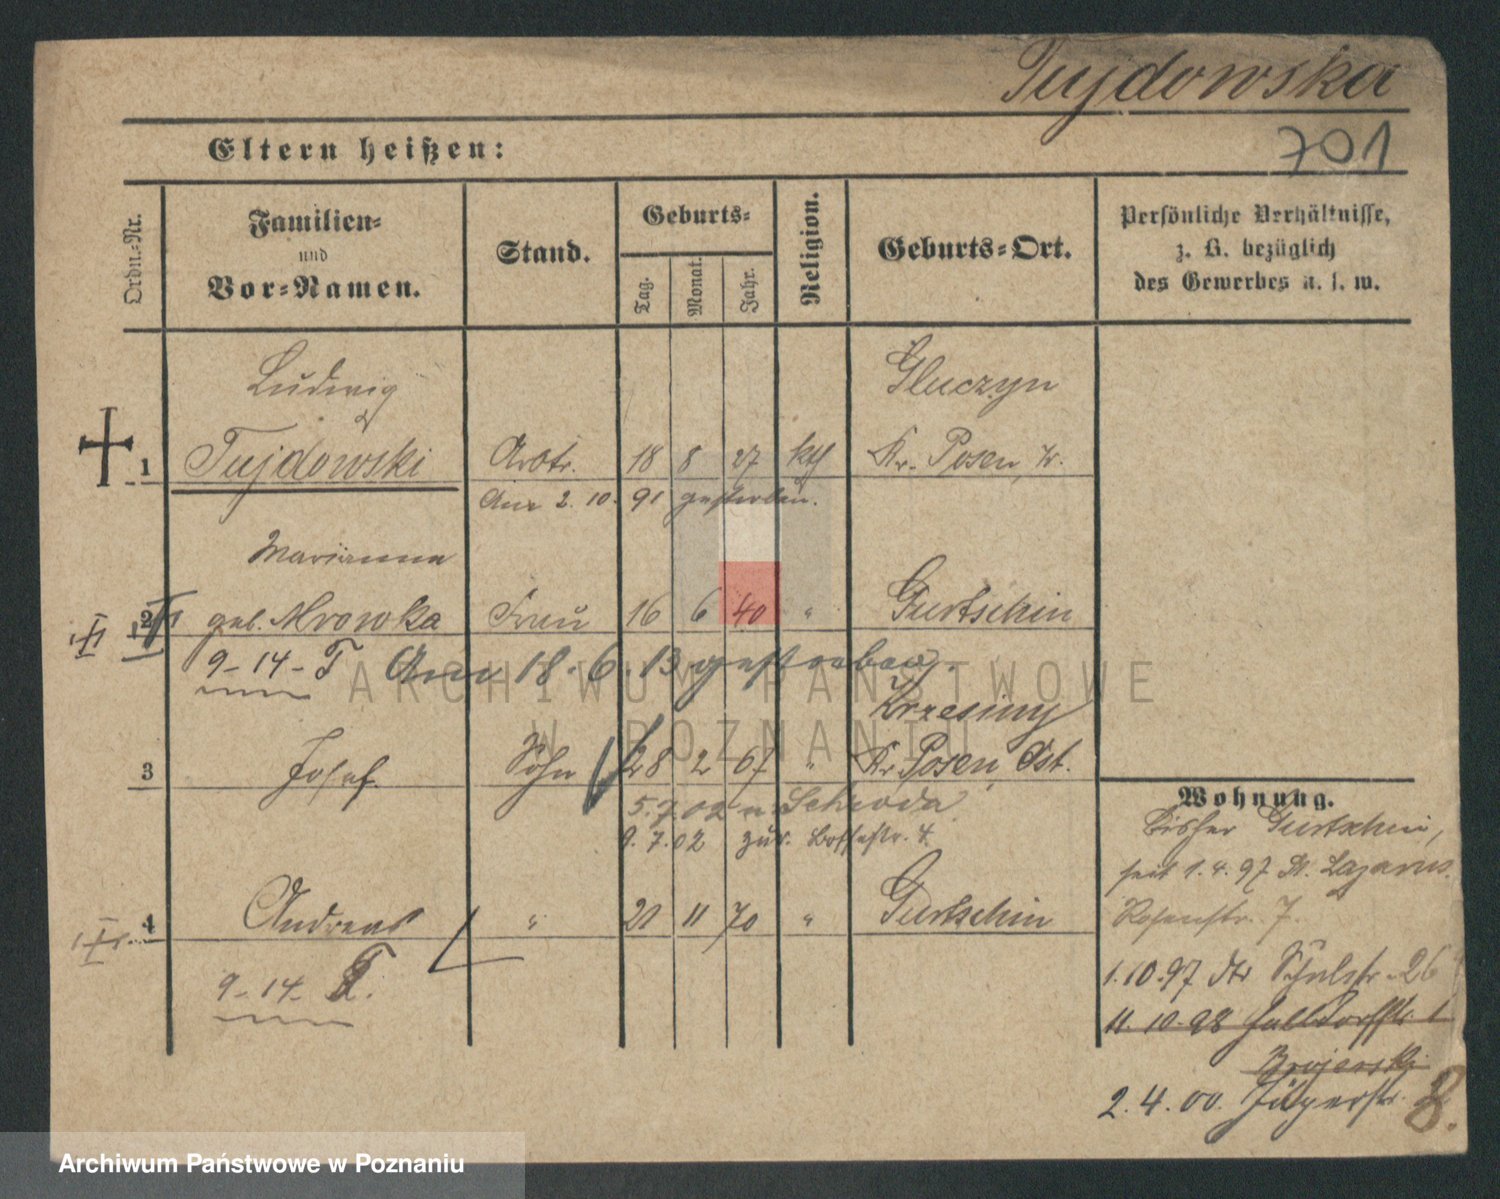 Tujdowska
Eltern heißen:
701
Ordn.-Nr.
Familien-
und
Vor-Namen.
Stand.
Geburts-
Tag.
Monat.
Jahr.
Religion.
Geburts-Ort.
Persönliche Verhältnisse,
z. B. bezüglich
des Gewerbes u. s. w.
Ludwig
Gluczyn
1 Tujdowski Arbtr. 18 8 27 kth Kr. Posen, W.
Am 2. 10. 91 gestorben.
Marianna
2 geb. Mrowka Frau 16 6 40 " Gurtschin
9-14- T Am 18. 6. 13 gestorben.
Krzesiny
3 Josef. Sohn 28 2 67 " Kr. Posen, Ost.
5.7.02 n. Schroda
9.7.02 zur.
4 Andreas " 21 11 70 " Gurtschin
9-14-
Wohnung.
Bisher Gurtschin,
seit 1.4.97 St. Lazarus.
Rosenstr. 7.
1.10.97 Schulstr. 26
11.10.98 1
2.4.00. Jägerstr. 8.
ARCHIWUM PAŃSTWOWE
W POZNANIU
Archiwum Państwowe w Poznaniu